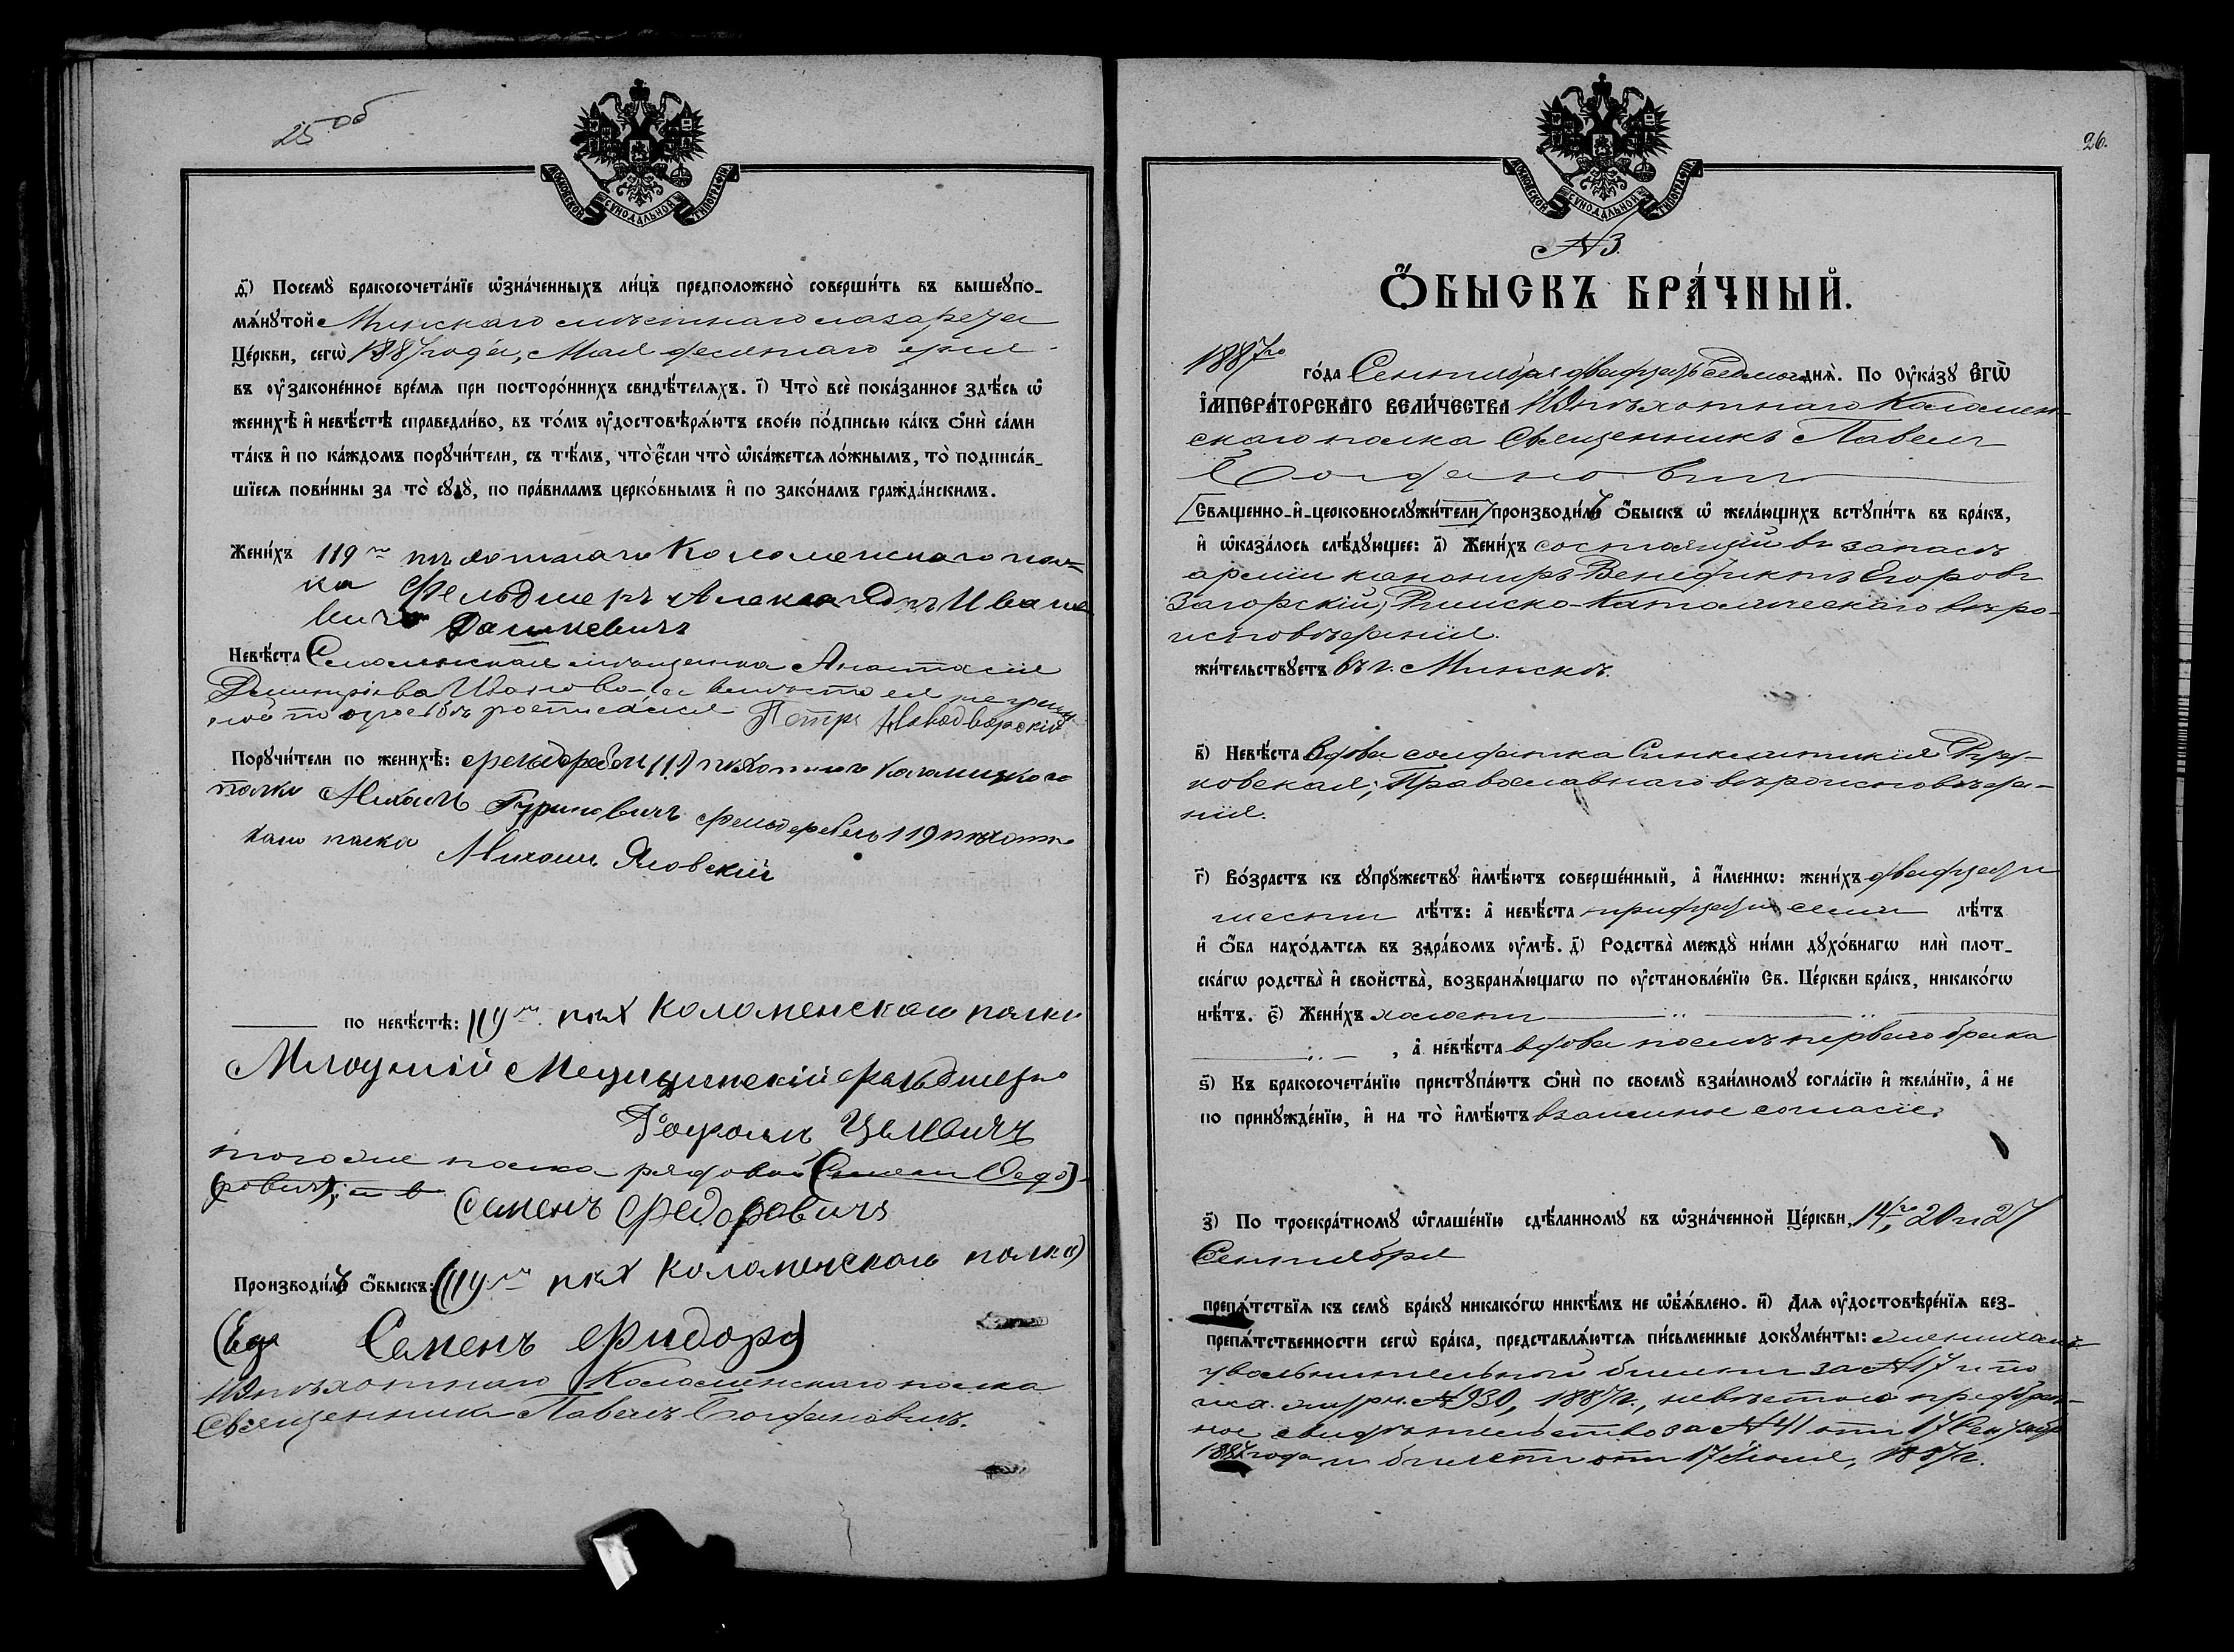 25 об
МОСКОВСКОЙ СѴНОДАЛЬНОЙ ТИПОГРАФІИ
д҃і) Посемꙋ̀ бракосочета́нїе ѡ҆зна́ченныхъ ли́цъ предположено̀ соверши́ть въ вышеꙋпо-
мѧ́нꙋтой Минскаго мѣстнаго лазарета
Це́ркви, сегѡ̀ 1887 года, Мая десятаго дня
въ ᲂу҆законе́нное вре́мѧ при посторо́ннихъ свидѣ́телѧхъ. і҃) Что̀ всѐ пока́занное здѣ́сь ѡ҆
женихѣ̀ и҆ невѣ́стѣ справедли́во, въ то́мъ ᲂу҆достовѣрѧ́ютъ свое́ю по́дписью ка́къ ѻ҆нѝ са́ми
та́къ и҆ по ка́ждомъ порꙋчи́тели, съ тѣ́мъ, что̀ є҆́сли что̀ ѡ҆ка́жетсѧ ло́жнымъ, то̀ подписа́в-
шїесѧ пови́нны за то̀ сꙋдꙋ̀, по пра́виламъ церко́внымъ и҆ по зако́намъ гражда́нскимъ.
Жени́хъ 119го пѣхотнаго Коломенскаго пол=
ка Фельдшеръ Александръ Ивано
вичъ Дашкевичъ
Невѣ́ста Смоленская мѣщанка Анастасія
Дмитріева Иванова, а вмѣсто ея неграмот
ной по просьбѣ росписался Петръ Новодворскій
Порꙋчи́тели по женихѣ̀: фельдфебель 119 пѣхотнаго Коломенскаго
полка Михаилъ Гуриновичъ фельдфебель 119 пѣхотн
каго полка Михаилъ Яновскій
по невѣ́стѣ: 119го пѣх Коломенскаго полка
Младшій Медицинскій фельдшеръ
того же полка рядовой (Семенъ Федо)
ровичъ); и в Семенъ Федоровичъ
Производи́лъ ѻ҆́быскъ: (119го пѣх Коломенскаго полка)
Семенъ Фидоро)
119 пѣхотнаго Коломенскаго полка
Священникъ Павелъ Богдановичъ.
26.
МОСКОВСКОЙ СѴНОДАЛЬНОЙ ТИПОГРАФІИ
№ 3.
Ѻ҆́БЫСКЪ БРА́ЧНЫЙ.
1887го го́да Сентября двадцать седьмого днѧ̀. По Оу҆ка́зꙋ Є҆ГѠ̀
И҆МПЕРА́ТОРСКАГО ВЕЛИ́ЧЕСТВА 119 пѣхотнаго Коломен-
скаго полка Священникъ Павелъ
Богдановичъ
[Свѧще́нно-и҆-церковнослꙋжи́тели] производи́лъ ѻ҆́быскъ ѡ҆ жела́ющихъ встꙋпи́ть въ бра́къ,
и҆ ѡ҆каза́лось слѣ́дꙋющее: а҃) Жени́хъ состоящій въ запасѣ
арміи канониръ Венедиктъ Егоровъ
Загорскій, Римско-Католическаго вѣро-
исповѣданія.
жи́тельствꙋетъ въ г. Минскѣ.
в҃) Невѣ́ста вдова солдатка Синклитикія Рут-
ковская, Православнаго вѣроисповѣда-
нія.
г҃) Во́зрастъ къ сꙋпрꙋ́жествꙋ и҆мѣ́ютъ соверше́нный, а҆ и҆́менно: жени́хъ двадцати
шести лѣ́тъ: а҆ невѣ́ста тридцати семи лѣ́тъ
и҆ ѻ҆́ба нахо́дѧтсѧ въ здра́вомъ ᲂу҆мѣ̀. д҃) Родства̀ междꙋ̀ ни́ми дꙋхо́внагѡ илѝ плот-
ска́гѡ родства̀ и҆ свойства̀, возбранѧ́ющагѡ по ᲂу҆становле́нїю Св. Це́ркви бра́къ, никако́гѡ
нѣ́тъ. є҃) Жени́хъ холостъ
, а҆ невѣ́ста вдова послѣ перваго брака
ѕ҃) Къ бракосочета́нїю пристꙋпа́ютъ ѻ҆нѝ по своемꙋ̀ взаи́мномꙋ согла́сїю и҆ жела́нїю, а҆ не
по принꙋжде́нїю, и҆ на то̀ и҆мѣ́ютъ взаимное согласіе.
з҃) По троекра́тномꙋ ѡ҆глаше́нїю сдѣ́ланномꙋ въ ѡ҆зна́ченной Це́ркви, 14го, 20 и 27
Сентября
препѧ́тствїѧ къ семꙋ̀ бра́кꙋ никако́гѡ никѣ́мъ не ѡ҆б̾ѧ́влено. и҃) Длѧ ᲂу҆достовѣре́нїѧ без-
препѧ́тственности сегѡ̀ бра́ка, представлѧ́ютсѧ пи́сьменные докꙋме́нты: женихомъ
увольнительный билетъ за №17 и по
№ 930, 1887 г., невѣстою предбрач-
ное свидѣтельство за №41 отъ 17 Сентября
1887 года и билетъ отъ 17 Іюня, 1887 г.